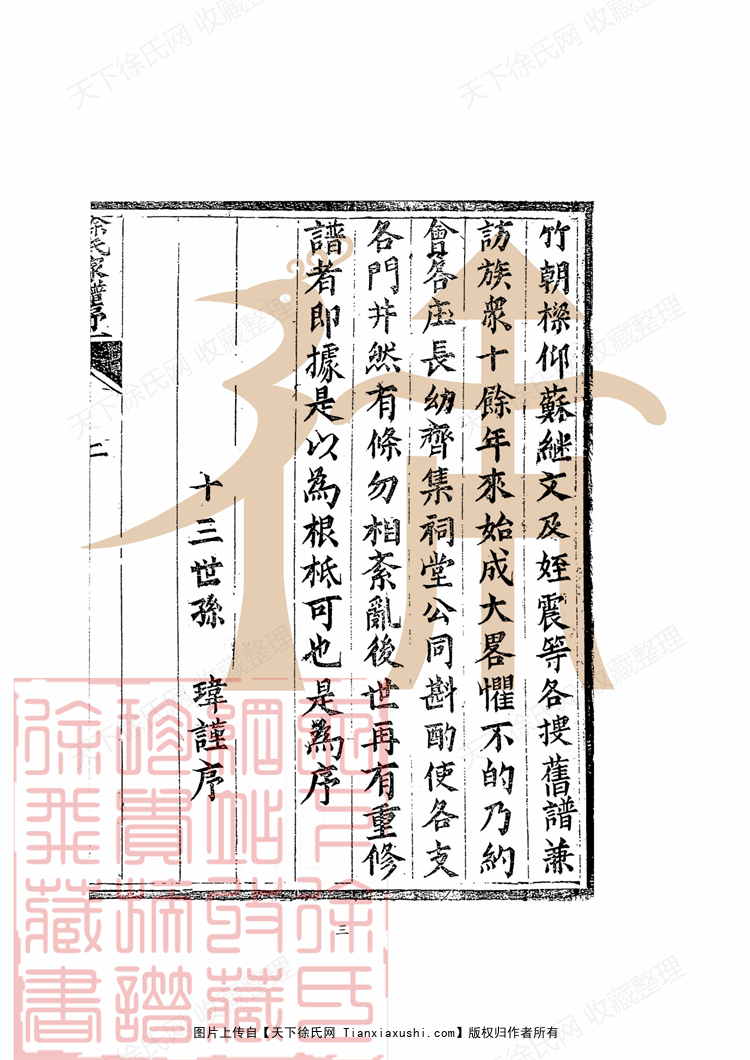 竹朝樑仰蘇継文及姪震等各捜舊譜兼
訪族衆十餘年來始成大畧懼不的乃約
會各庄長幼齊集祠堂公同斟酌使各支
各門井然有條勿相紊亂後世再有重修
譜者即據是以為根柢可也是為序
十三世孫 瑋謹序
徐氏家譜序
二
三
天下徐氏网 收藏整理
徐
天下徐氏网
珍貴
徐
藏書
图片上传自【天下徐氏网 Tianxiaxushi.com】版权归作者所有